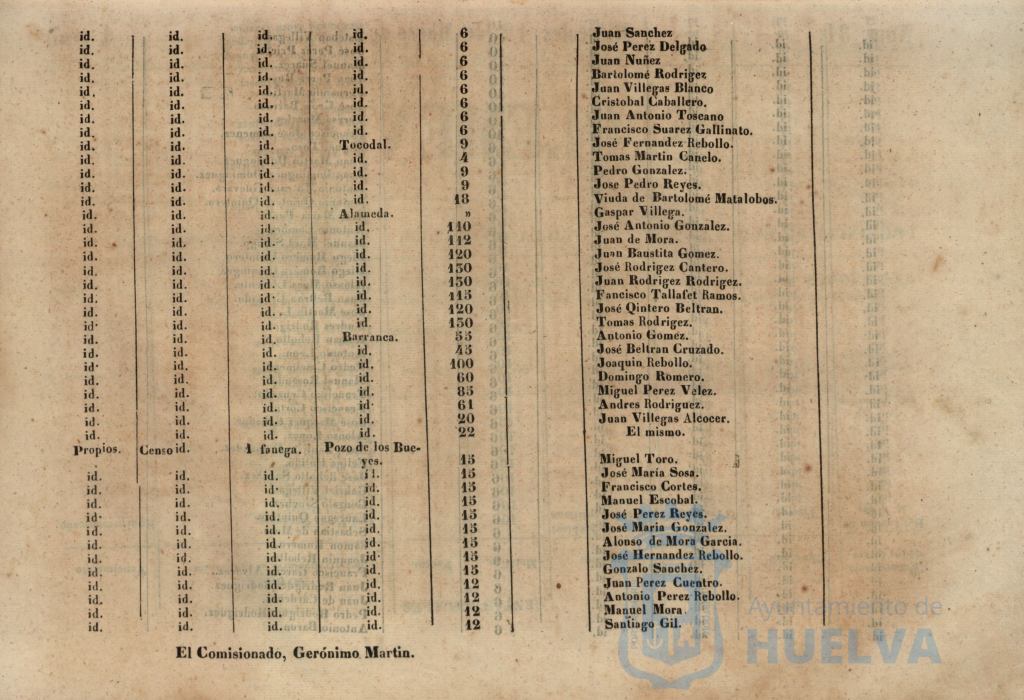 id. id. id. id. 6 Juan Sanchez
id. id. id. id. 6 José Perez Delgado
id. id. id. id. 6 Juan Nuñez
id. id. id. id. 6 Bartolomé Rodrigez
id. id. id. id. 6 Juan Villegas Blanco
id. id. id. id. 6 Cristobal Caballero.
id. id. id. id. 6 Juan Antonio Toscano
id. id. id. id. 6 Francisco Suarez Gallinato.
id. id. id. Tocodal. 9 José Fernandez Rebollo.
id. id. id. id. 4 Tomas Martin Canelo.
id. id. id. id. 9 Pedro Gonzalez.
id. id. id. id. 9 Jose Pedro Reyes.
id. id. id. id. 18 Viuda de Bartolomé Matalobos.
id. id. id. Alameda. » Gaspar Villega.
id. id. id. id. 110 José Antonio Gonzalez.
id. id. id. id. 112 Juan de Mora.
id. id. id. id. 120 Juan Baustita Gomez.
id. id. id. id. 150 José Rodrigez Cantero.
id. id. id. id. 150 Juan Rodrigez Rodrigez.
id. id. id. id. 115 Fancisco Tallafet Ramos.
id. id. id. id. 120 José Qintero Beltran.
id. id. id. id. 150 Tomas Rodrigez.
id. id. id. Barranca. 55 Antonio Gomez.
id. id. id. id. 45 José Beltran Cruzado.
id. id. id. id. 100 Joaquin Rebollo.
id. id. id. id. 60 Domingo Romero.
id. id. id. id. 85 Miguel Perez Velez.
id. id. id. id. 61 Andres Rodriguez.
id. id. id. id. 20 Juan Villegas Alcocer.
id. id. id. id. 22 El mismo.
Propios. Censo id. 1 fanega. Pozo de los Bue-
yes. 15 Miguel Toro.
id. id. id. id. 15 José María Sosa.
id. id. id. id. 15 Francisco Cortes.
id. id. id. id. 15 Manuel Escobal.
id. id. id. id. 15 José Perez Reyes.
id. id. id. id. 15 José Maria Gonzalez.
id. id. id. id. 15 Alonso de Mora Garcia.
id. id. id. id. 15 José Hernandez Rebollo.
id. id. id. id. 15 Gonzalo Sanchez.
id. id. id. id. 12 Juan Perez Cuentro.
id. id. id. id. 12 Antonio Perez Rebollo.
id. id. id. id. 12 Manuel Mora.
id. id. id. id. 12 Santiago Gil.
El Comisionado, Gerónimo Martin.
Ayuntamiento de
HUELVA